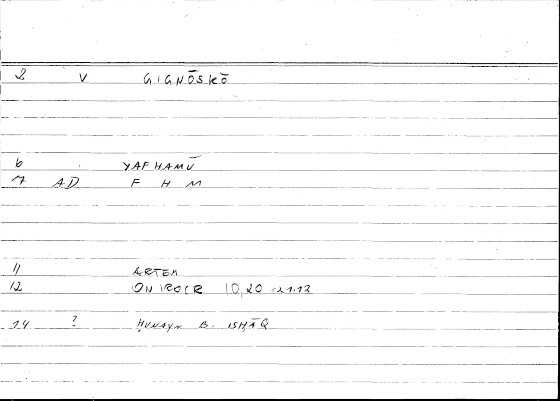 2 V GIGNŌSKŌ
6 . YAFHAMŪ
7 AD F H M
11 ARTEM
12 ONIROCR 10,20 =21.12
14 ? ḤUNAYN B. ISḤĀQ